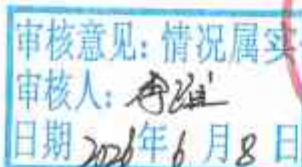 审核意见：情况属实
审核人：
日期 2026年6月8日